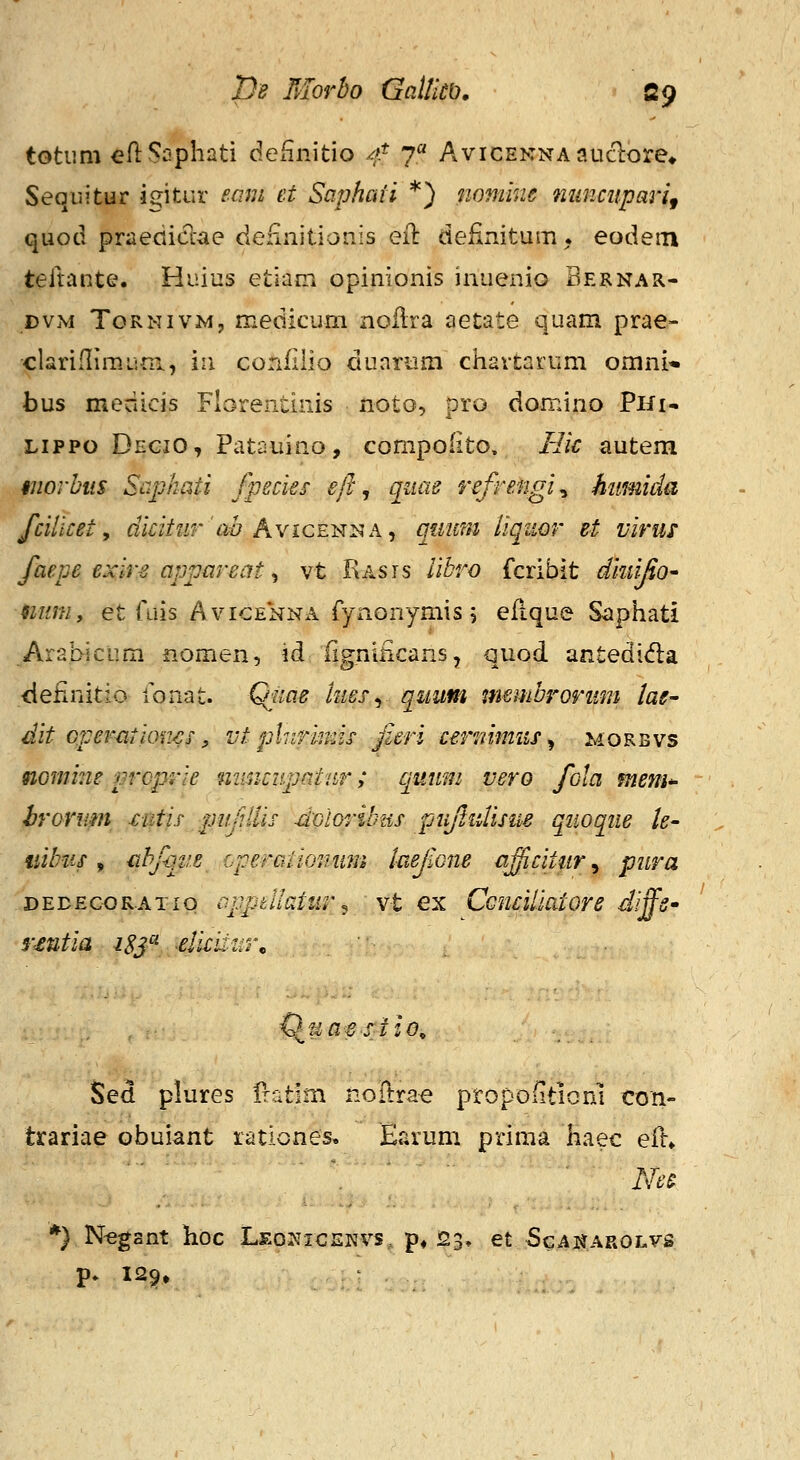 De Morbo Gallico. 29
totum eſt Saphati definitio 4ᵗ 7ᵃ AVICENNA auctore.
Sequitur igitur eam et Saphati *) nomine nuncupari,
quod praedictae definitionis eſt definitum, eodem
teſtante. Huius etiam opinionis inuenio BERNAR-
DVM TORNIVM, medicum noſtra aetate quam prae-
clariſſimum, in conſilio duarum chartarum omni-
bus medicis Florentinis noto, pro domino PHI-
LIPPO DECIO, Patauino, compoſito. Hic autem
morbus Saphati ſpecies eſt, quae refrengi, humida
ſcilicet, dicitur ab AVICENNA, quum liquor et virus
ſaepe exire appareat, vt RASIS libro ſcribit diuiſio-
num, et ſuis AVICENNA ſynonymis; eſtque Saphati
Arabicum nomen, id ſignificans, quod antedicta
definitio ſonat. Quae lues, quum membrorum lae-
dit operationes, vt plurimis fieri cernimus, MORBVS
nomine proprie nuncupatur; quum vero ſola mem-
brorum cutis puſillis doloribus puſtulisue quoque le-
uibus, abſque operationum laeſione afficitur, pura
DEDECORATIO appellatur, vt ex Conciliatore diffe-
rentia 183ᵃ elicitur.
Quaestio.
Sed plures ſtatim noſtrae propoſitioni con-
trariae obuiant rationes. Earum prima haec eſt.
Nec
*) Negant hoc LEONICENVS p. 23. et SCANAROLVS
p. 129.